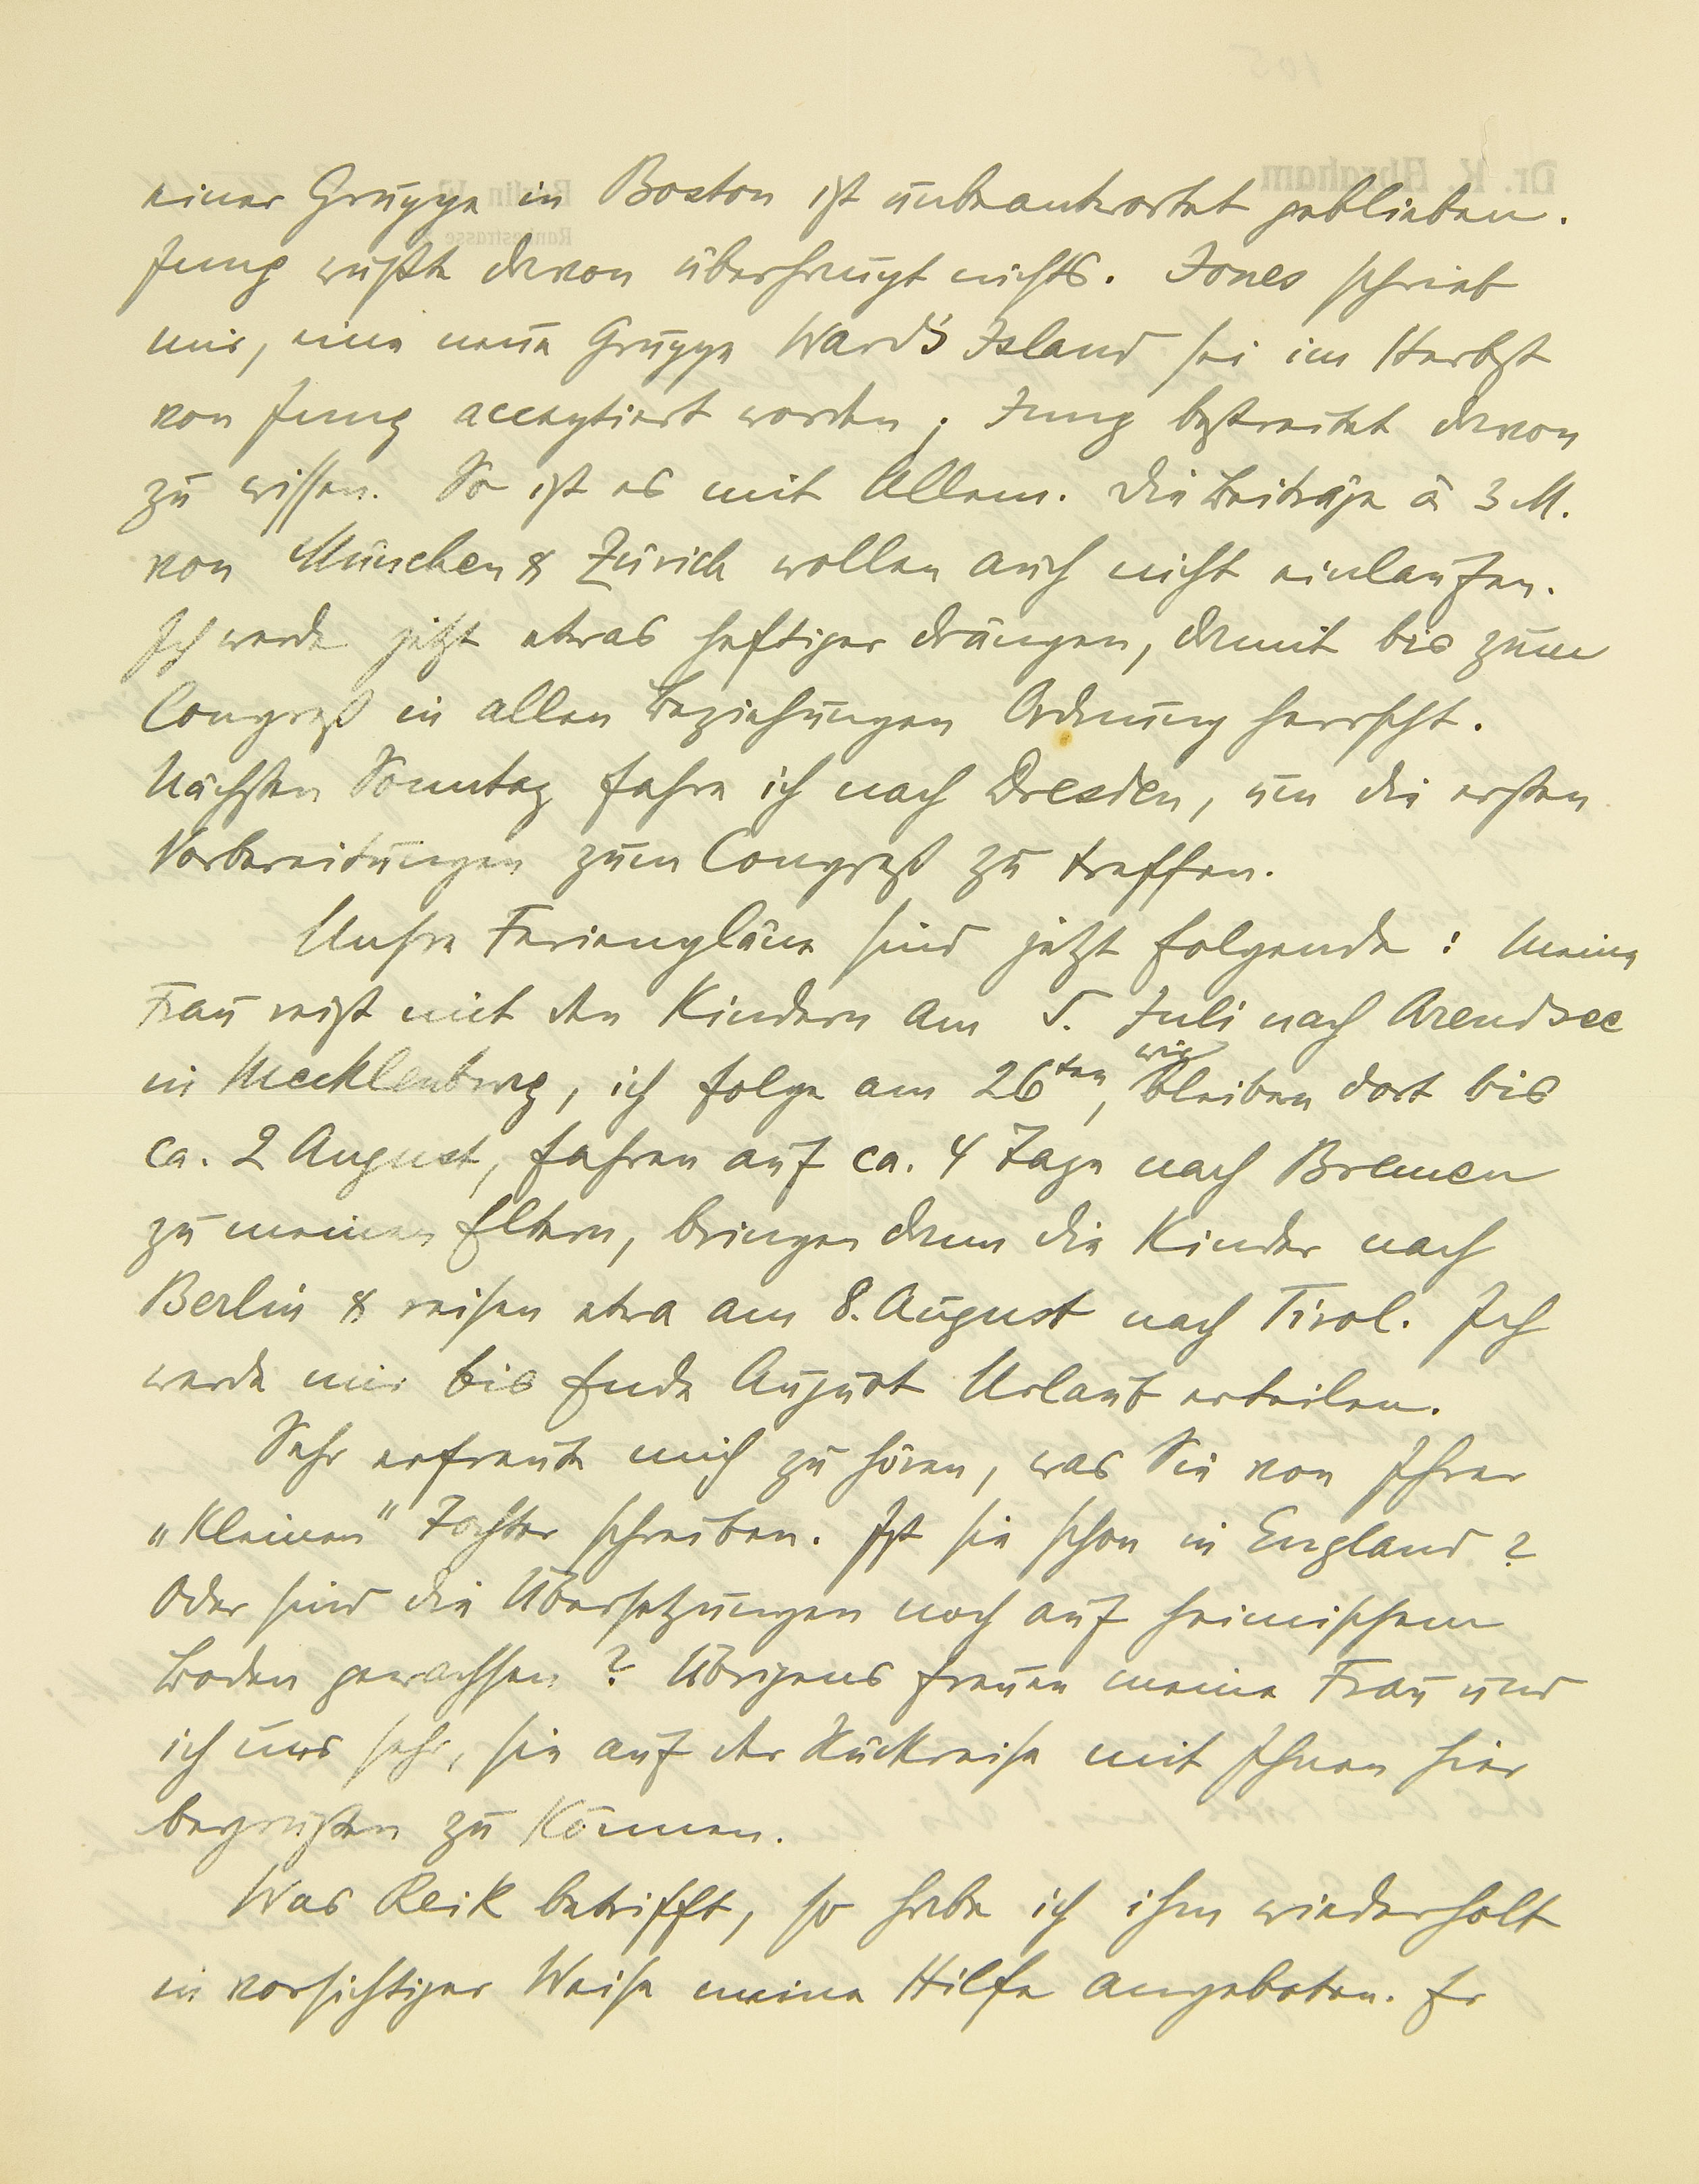 einer Gruppe in Boston ist unbeantwortet geblieben.
Jung wußte davon überhaupt nichts. Jones schrieb
mir, eine neue Gruppe Ward's Island sei im Herbst
von Jung acceptiert worden; Jung bestreitet davon
zu wissen. So ist es mit Allem. Die Beiträge à 3 M.
von München & Zürich wollen auch nicht einlaufen.
Ich werde jetzt etwas heftiger drängen, damit bis zum
Congreß in allen Beziehungen Ordnung herrscht.
Nächsten Sonntag fahre ich nach Dresden, um die ersten
Vorbereitungen zum Congreß zu treffen.
Unsre Ferienpläne sind jetzt folgende: Meine
Frau reist mit den Kindern am 5. Juli nach Arendsee
in Mecklenburg, ich folge am 26ten, wir bleiben dort bis
ca. 2 August, fahren auf ca. 4 Tage nach Bremen
zu meinen Eltern, bringen dann die Kinder nach
Berlin & reisen etwa am 8. August nach Tirol. Ich
werde mir bis Ende August Urlaub erteilen.
Sehr erfreute mich zu hören, was Sie von Ihrer
„kleinen" Tochter schreiben. Ist sie schon in England?
Oder sind die Übersetzungen noch auf heimischem
Boden gewachsen? Übrigens freuen meine Frau und
ich uns sehr, sie auf der Rückreise mit Ihnen hier
begrüßen zu können.
Was Reik betrifft, so habe ich ihm wiederholt
in vorsichtiger Weise meine Hilfe angeboten. Er